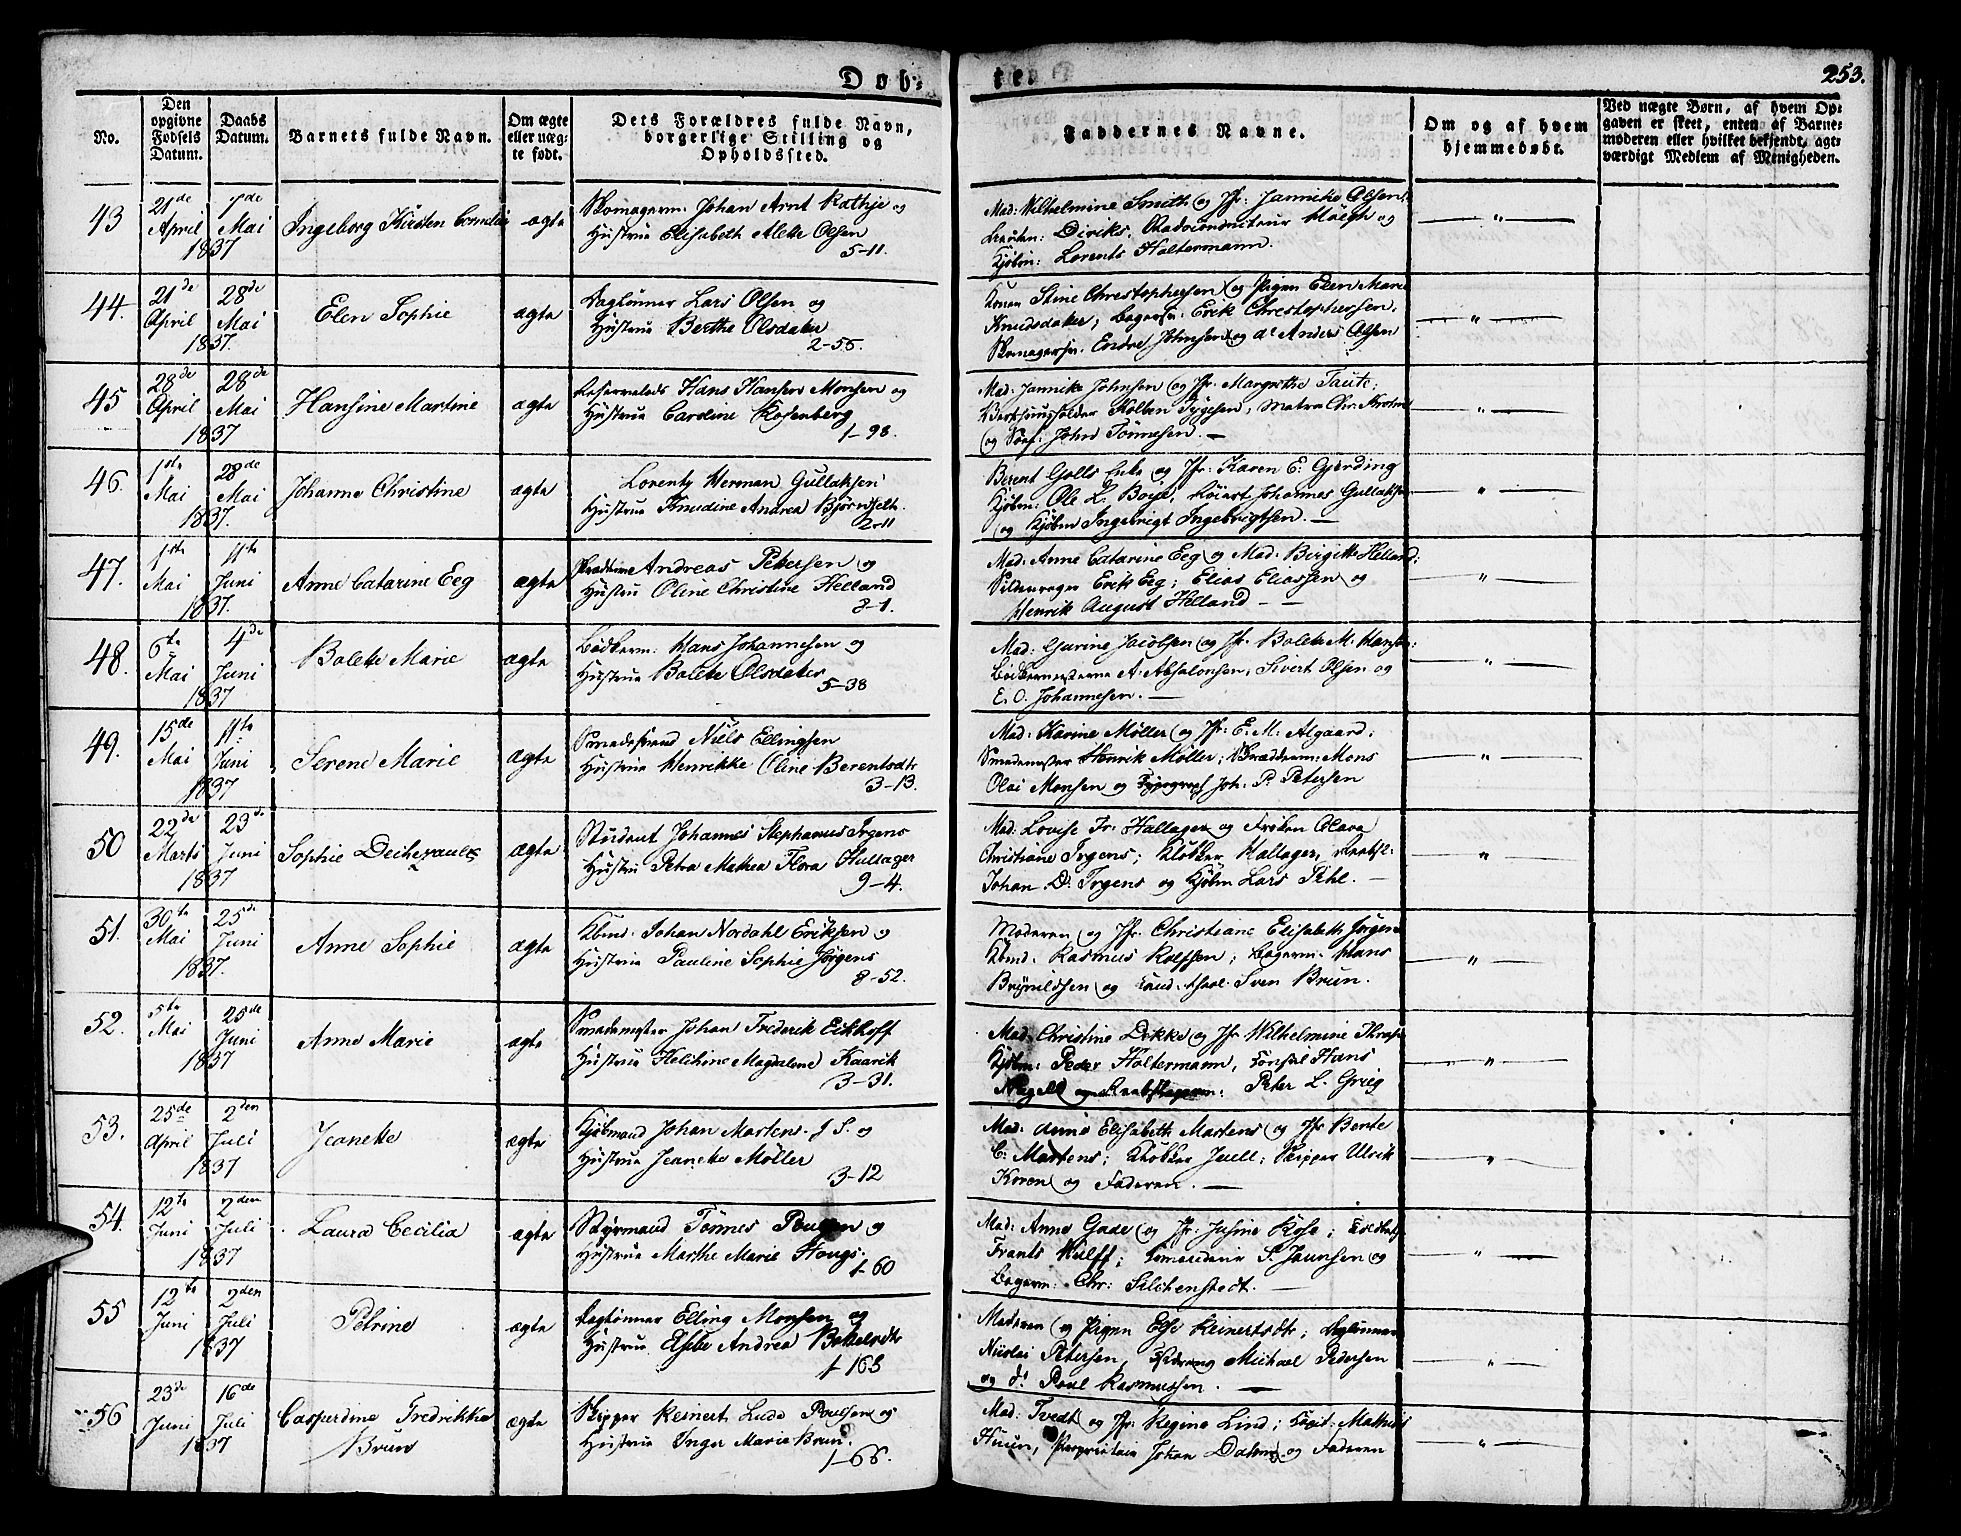 Døb-
te
253.
No.
Den opgivne Fødsels Datum.
Daabs Datum.
Barnets fulde Navn.
Om ægte eller uægte født.
Dets Forældres fulde Navn, borgerlige Stilling og Opholdssted.
Faddernes Navne.
Om og af hvem hjemmedøbt.
Ved uægte Børn, af hvem Opgaven er skeet, enten af Barnemoderen eller hvilket bekjendt, agtværdigt Medlem af Menigheden.
43
21de April 1837
7de Mai
Ingeborg Kirsten Cornelia
ægte
Skomagerm: Johan Arnt Rathje og
Hustrue Elisabeth Alette Olsen
5-11.
Mad: Wilhelmine Smith og Jfr: Jannike Olsen;
Diriks,
Kjøbm: Lorents Holtermann.
"
44.
21de April 1837.
28de Mai
Elen Sophie
ægte
Daglønner Lars Olsen og
Hustrue Berthe Olsdatter
2-56.
Konen Stine Christophersen og Pigen Elen Marie
Knudsdatter; Bagersv: Erik Christophersen,
Skomagersv. Endre Johnsen og do Anders Olsen
"
45
28de April 1837
28de Mai
Hansine Martine
ægte
Hans Hansen Monsen og
Hustrue Caroline Rosenberg
1-98.
Mad. Jannike Johnsen og Jfr. Margrethe Taute;
Kolben Tygesen, Matro Chr.
og John Tønnesen. —
"
46.
1ste Mai 1837.
28de Mai
Johanne Christine
ægte
Lorentz Herman Gullaksen
Hustrue Knudine Andrea Bjørnseth.
2-11
Berent Golls Enke og Jfr: Karen E. Gjerding
Kjøbm: Ole L. Boye, Johannes Gullaksen
og Kjøbm Ingebrigt Ingebrigtsen. —
"
47.
1ste Mai 1837.
11te Juni
Anne Catarine Eeg
ægte
Andreas Petersen og
Hustru Oline Christine Helland
8-1.
Mad. Anne Catarine Eeg og Mad. Birgitte Helland;
Erik Eeg; Elias Eliassen og
Henrik August Helland — —
"
48.
6te Mai 1837
4de Juni
Bolette Marie
ægte
Bødkerm: Hans Johannesen og
Hustrue Bolette Olsdatter
5-38
Mad. Gurine Jacobsen og Jfr. Bolette M. Hansen;
Bødkermesterne A. Absalonsen, Sivert Olsen og
E. O. Johannesen. —
"
49.
15de Mai 1837
11te Juni
Serene Marie
ægte
Niels Ellingsen
Hustrue Henrikke Oline Berentsdtr
3-13.
Mad. Karine Møller og Jfr: E. M. Algaard;
Smedemester Henrik Møller; Mons
Olai Monsen og Typograf Joh. P. Petersen
50
22de Marts 1837
23de Juni
Sophie
ægte
Student Johannes Stephanus Irgens
Hustru Petra Mathea Flora Hallager
9-4.
Mad: Lovise Fr. Hallager og Frøken Olava
Christiane Irgens; Klokker Hallager,
Johan D. Irgens og Kjøbm Lars Pihl. —
"
51.
30te Mai 1837.
25de Juni
Anne Sophie
ægte
Kbmd. Johan Nordahl Eriksen og
Hustrue Pauline Sophie Jørgens
8-52.
Moderen og Jfr. Christiane Elisabeth Jørgens
Kbmd. Rasmus Rolfsen; Bagerm: Hans
Brynildsen og Cand. theol. Sven Brun.
"
52.
5te Mai 1837
25de Juni
Anne Marie
ægte
Smedemester Johan Frederik Eikhoff
Hustrue Magdalene Kaarik
3-31.
Mad. Christine Dekke og Jfr Wilhelmine
Kjøbm: Peder Holtermann, Consul Hans
Peter L. Grieg
"
53.
25de April 1837
2den Juli
Jeanette
ægte
Kjøbmand Johan Martens J. S. og
Hustrue Jeanette Møller
3-12
Mad. Anne Elisabeth Martens og Jfr Bente
C. Martens; Klokker Juell; Skipper Ulrik
Koren og Faderen. —
"
54.
12te Juni 1837
2den Juli
Laura Cecilia
ægte
Styrmand Tønnes Poulsen og
Hustrue Marthe Marie Hougs.
1-60
Mad: Anne Gade og Jfr. Justine Rose;
Frants Wulff; S. Jannsen og
Bagerm: Chr: Silchenstedt. —
"
55
12te Juni 1837
2den Juli
Petrine
ægte
Daglønner Elling Monsen og
Hustrue Elsebe Andrea
1-163
Moderen og Pigen Elsi Reinertsdtr; Daglønnerne
Nicolai Petersen, Michael Pedersen
og do Poul Rasmussen. —
"
56
23de Juni 1837
16de Juli
Casperdine Fredrikke
Brun
ægte
Skipper Reinert Lude Poulsen og
Hustrue Inger Marie Brun.
1-66.
Mad: Tvedt og Jfr: Regine Lind; Capit: Mathias
Huun, Proprietair Johan Dahm og Faderen
"